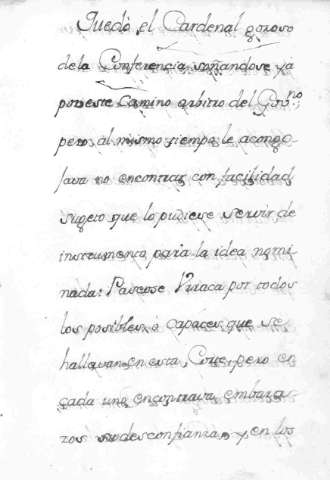 Quedó el Cardenal gozoso
de la Conferencia soñandose ya
por este Camino arbitro del Gov.no;
pero, al mismo tiempo le acongo
java no encontrar con facilidad
sugeto que lo pudiese servir de
instrumento para la idea nomi
nada: Paseose por todos
los posibles, ó capaces que se
hallavan en esta Corte, pero en
cada uno encontrava embara
zos desconfianza, y en los